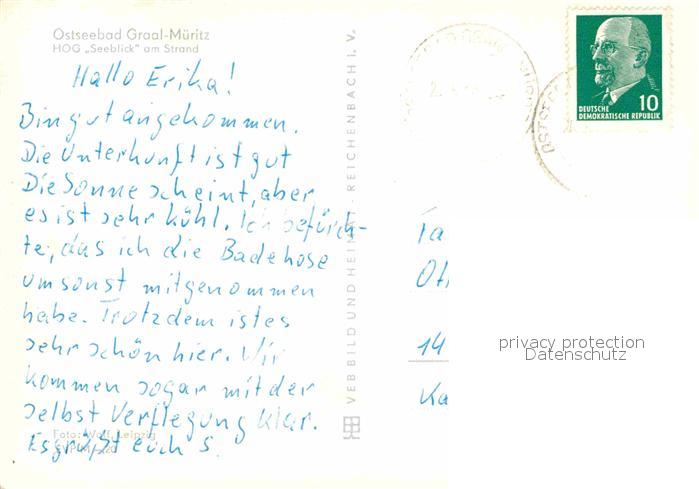 Ostseebad Graal-Müritz
HOG „Seeblick" am Strand
Hallo Erika!
Bin gut angekommen.
Die Unterkunft ist gut
Die Sonne scheint, aber
es ist sehr kühl. Ich befürch-
te, das ich die Badehose
umsonst mitgenommen
habe. Trotzdem ist es
sehr schön hier. Wir
kommen sogar mit der
selbst Verflegung klar.
Es grüßt euch S.
Foto: Wolf, Leipzig
VEB BILD UND HEIMAT REICHENBACH I. V.
10
DEUTSCHE
DEMOKRATISCHE REPUBLIK
OSTSEE
Fa
Ott
14
Ka
privacy protection
Datenschutz